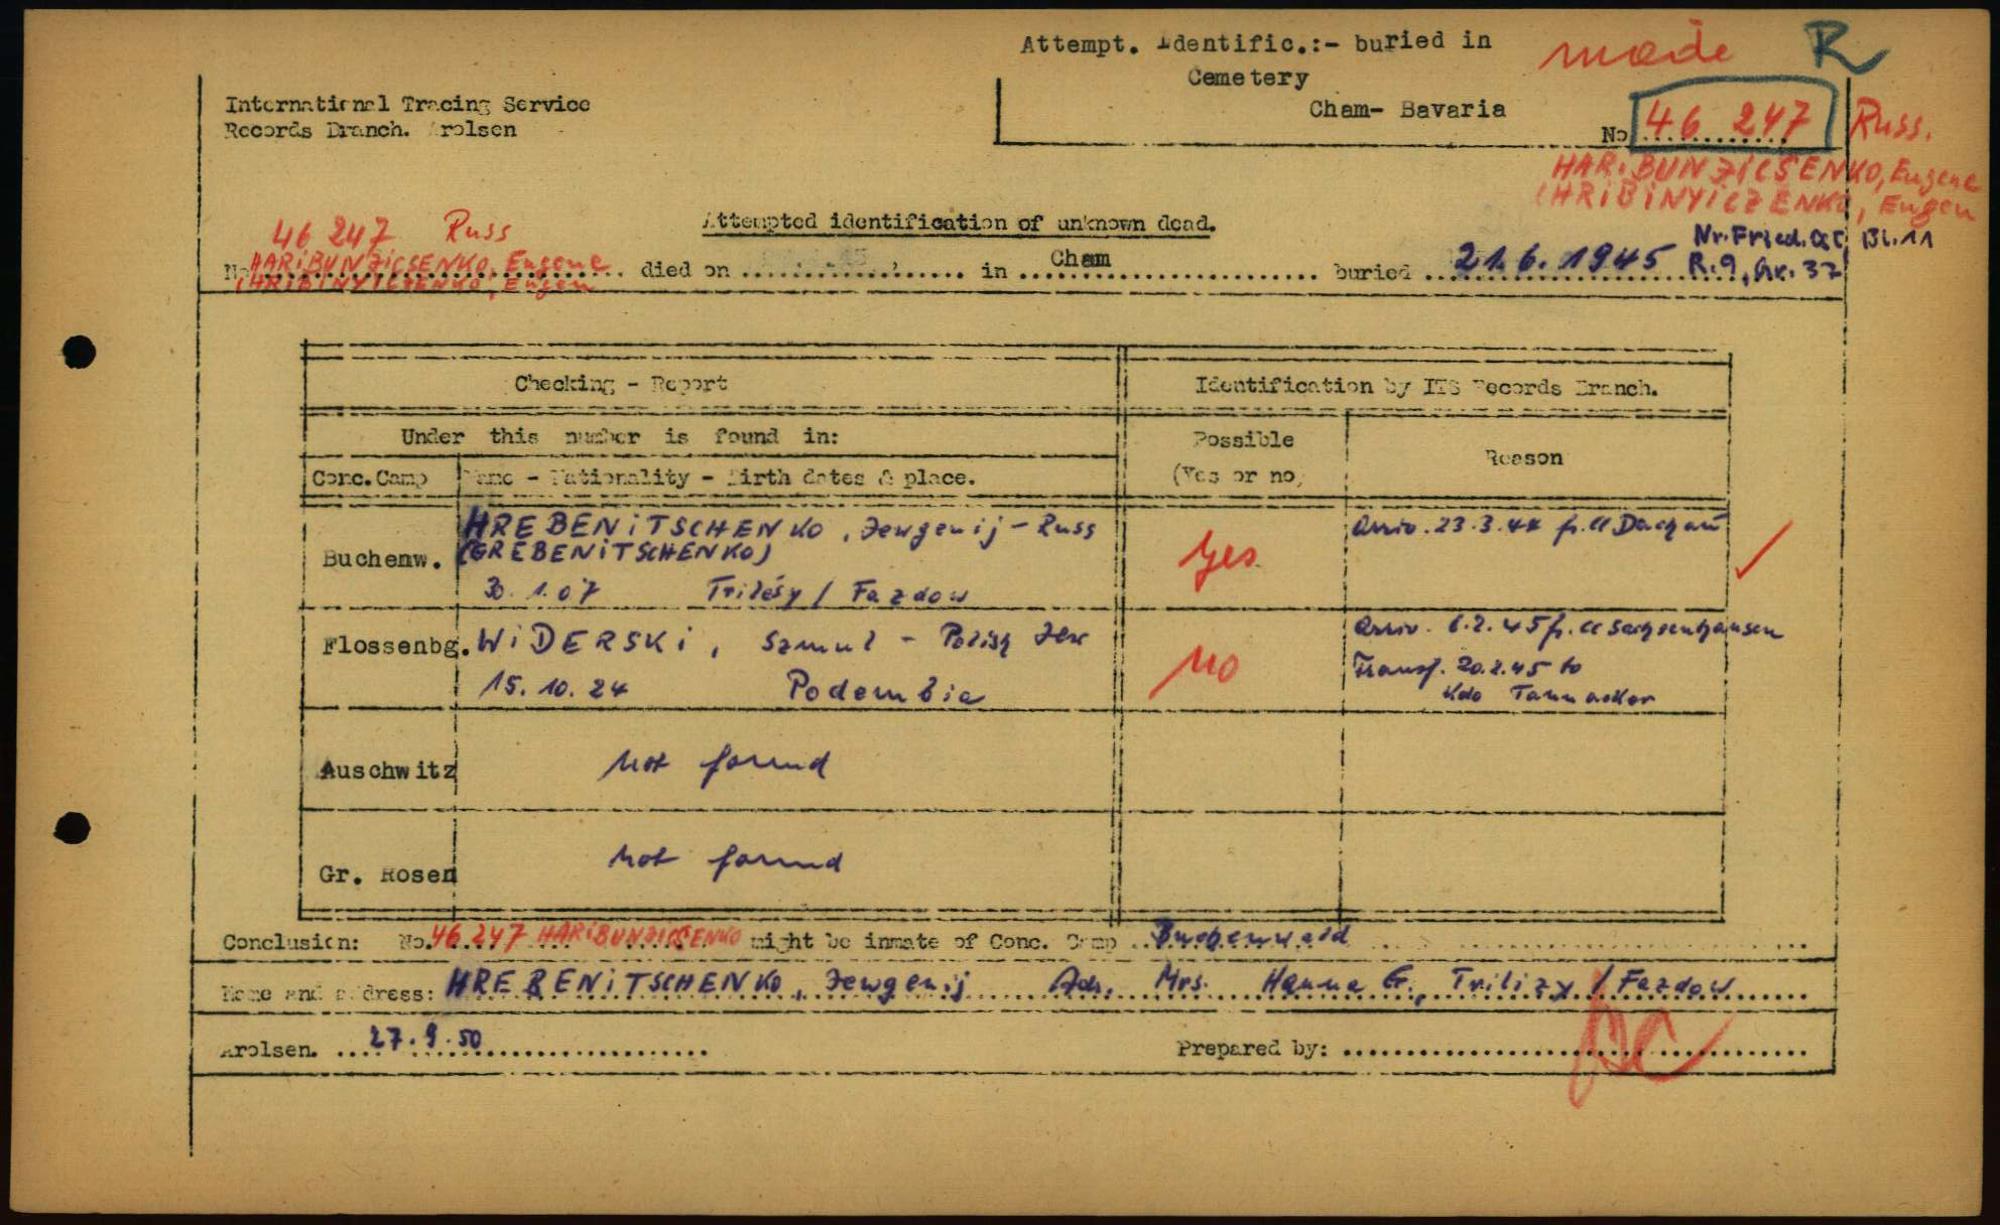 Attempt. Identific.:- buried in
Cemetery
Cham- Bavaria
made R
International Tracing Service
Records Branch. Arolsen
No 46 247 Russ.
HARIBUNZICSENKO, Eugene
(HRIBINYICZENKO, Eugen
Attempted identification of unknown dead.
46 247 Russ
No HARIBUNZICSENKO, Eugene died on in Cham buried 21.6.1945 Nr. Fried. Bl. 11
(HRIBINYICZENKO, Eugen R.9, Gr. 37
Checking - Report Identification by ITS Records Branch.
Under this number is found in: Possible Reason
Conc.Camp Name - Nationality - Birth dates & place. (Yes or no)
Buchenw. HREBENITSCHENKO, Jewgenij - Russ Yes Arriv. 23.3.44 fr. CC Dachau
(GREBENITSCHENKO)
30.1.07 Trilésy / Fazdow
Flossenbg. WIDERSKI, Szmul - Polish Jew No Arriv. 6.2.45 fr. CC Sachsenhausen
15.10.24 Podembia Transf. 20.2.45 to
Kdo
Auschwitz not found
Gr. Rosen not found
Conclusion: No. 46 247 HARIBUNZICSENKO might be inmate of Conc. Camp Buchenwald
Name and address: HREBENITSCHENKO, Jewgenij Adr. Mrs. Hanna G., Trilizy / Fazdow
Arolsen. 27.9.50 Prepared by: